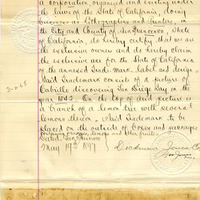 a corporation organized and existing under
the laws of the State of California, doing
business as Lithographers and Printers, in
the City and County of San Francisco, State
of California, do hereby certify that we are
the exclusive owners and do hereby claim
the exclusive use for the State of California
of the annexed Trade mark, label and design
Said Trademark consists of a picture of
Cabrillo discovering San Diego Bay in the
year 1542. On the top of said picture is
a branch of a lemon tree with several
lemons thereon. Said Trademark to be
placed on the outside of boxes and packages
containing lemons and other
Dated San Francisco
May 19th 1897